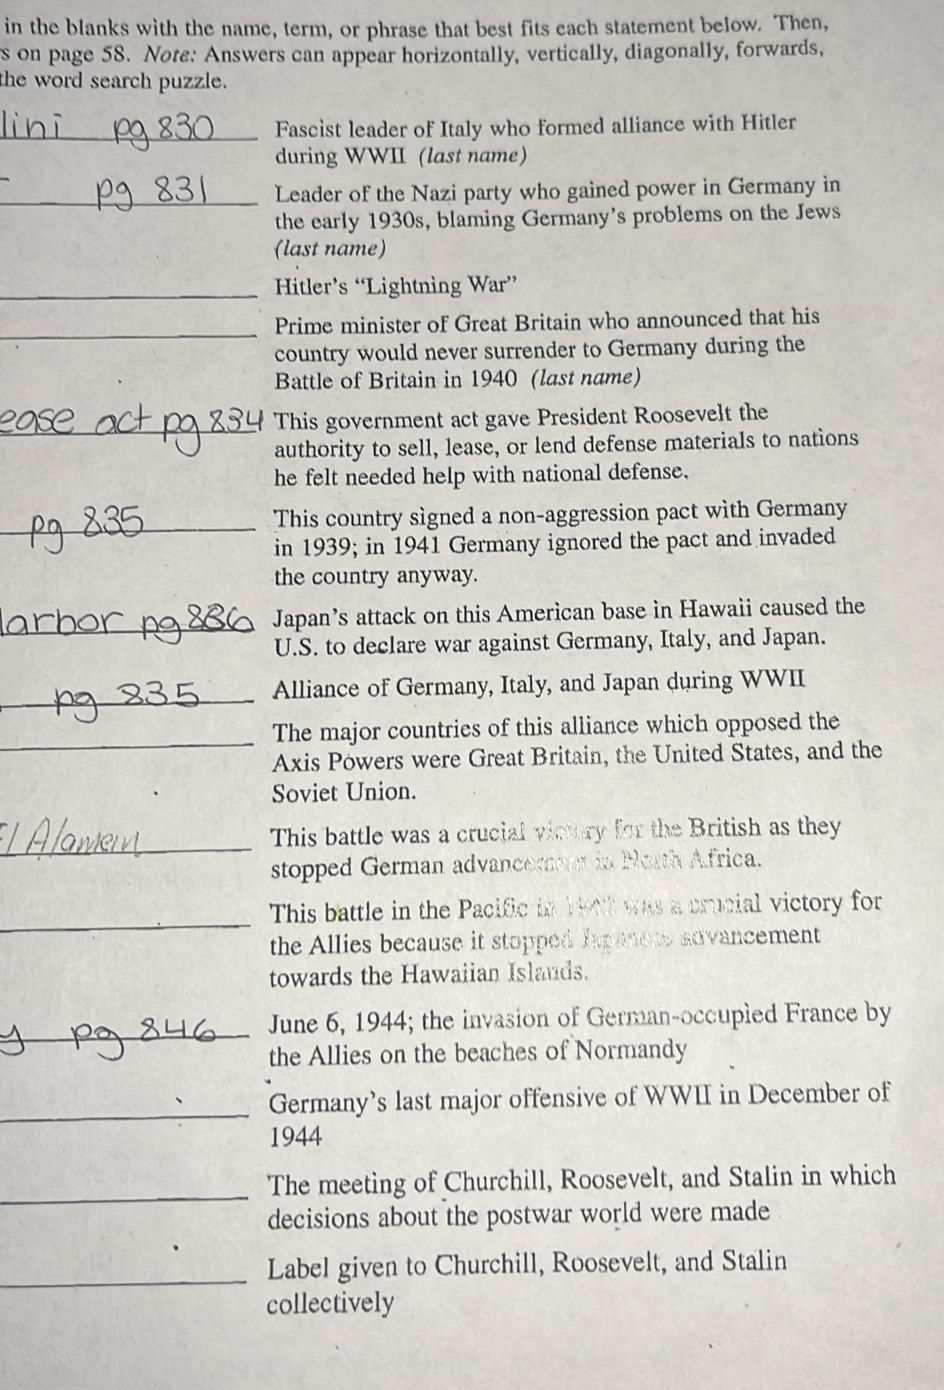 in the blanks with the name, term, or phrase that best fits each statement below. Then,
s on page 58. Note: Answers can appear horizontally, vertically, diagonally, forwards,
the word search puzzle.
lini pg 830 Fascist leader of Italy who formed alliance with Hitler
during WWII (last name)
pg 831 Leader of the Nazi party who gained power in Germany in
the early 1930s, blaming Germany's problems on the Jews
(last name)
Hitler's "Lightning War"
Prime minister of Great Britain who announced that his
country would never surrender to Germany during the
Battle of Britain in 1940 (last name)
ease act pg 834 This government act gave President Roosevelt the
authority to sell, lease, or lend defense materials to nations
he felt needed help with national defense.
pg 835 This country signed a non-aggression pact with Germany
in 1939; in 1941 Germany ignored the pact and invaded
the country anyway.
arbor pg 836 Japan's attack on this American base in Hawaii caused the
U.S. to declare war against Germany, Italy, and Japan.
pg 835 Alliance of Germany, Italy, and Japan during WWII
The major countries of this alliance which opposed the
Axis Powers were Great Britain, the United States, and the
Soviet Union.
El Alamein This battle was a crucial victory for the British as they
stopped German advancement in North Africa.
This battle in the Pacific in was a crucial victory for
the Allies because it stopped Japanese advancement
towards the Hawaiian Islands.
y pg 846 June 6, 1944; the invasion of German-occupied France by
the Allies on the beaches of Normandy
Germany's last major offensive of WWII in December of
1944
The meeting of Churchill, Roosevelt, and Stalin in which
decisions about the postwar world were made
Label given to Churchill, Roosevelt, and Stalin
collectively